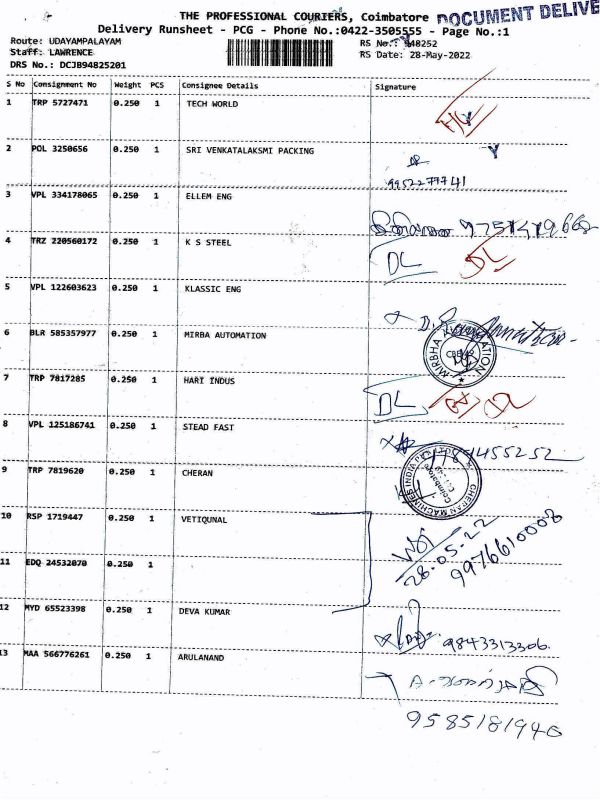 THE PROFESSIONAL COURIERS, Coimbatore DOCUMENT DELIVE
Delivery Runsheet - PCG - Phone No.:0422-3505555 - Page No.:1
Route: UDAYAMPALAYAM RS No.: 948252
Staff: LAWRENCE RS Date: 28-May-2022
DRS No.: DCJB94825201
S No Consignment No Weight PCS Consignee Details Signature
1 TRP 5727471 0.250 1 TECH WORLD
2 POL 3250656 0.250 1 SRI VENKATALAKSMI PACKING
9952277741
3 VPL 334178065 0.250 1 ELLEM ENG
4 TRZ 220560172 0.250 1 K S STEEL DL DL
5 VPL 122603623 0.250 1 KLASSIC ENG
6 BLR 585357977 0.250 1 MIRBA AUTOMATION
7 TRP 7817285 0.250 1 HARI INDUS DL
8 VPL 125186741 0.250 1 STEAD FAST
9 TRP 7819620 0.250 1 CHERAN CHERAN MACHINES INDIA
10 RSP 1719447 0.250 1 VETIQUNAL
28.05.22
9976610008
11 EDQ 24532070 0.250 1
12 MYD 65523398 0.250 1 DEVA KUMAR 9843313306
13 MAA 566776261 0.250 1 ARULANAND
9585181940